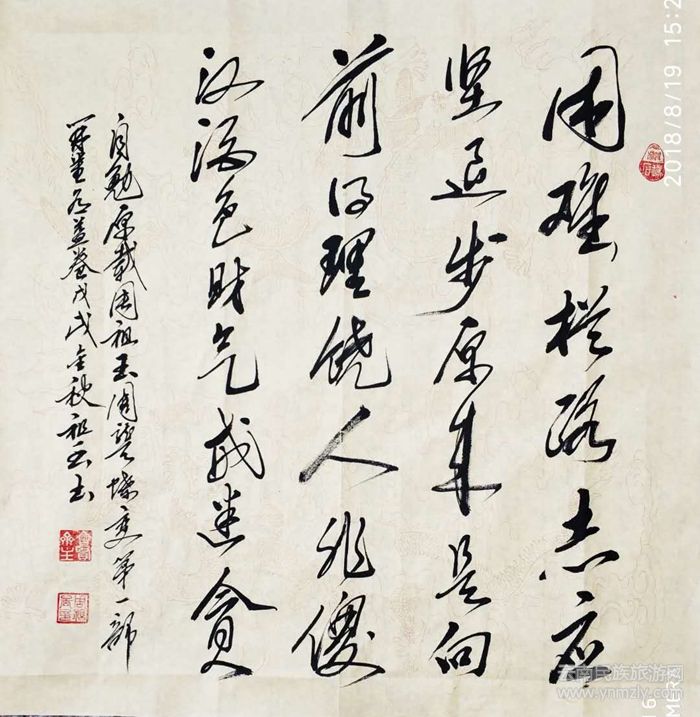 困难栏路志应
坚退步原来是向
前得理饶人非傻
汉酒色财气戒迷贪
自勉原载周祖玉周誉蝶变第一部
戊戌金秋祖玉书
2018/8/19 15:2
云南民族旅游网
www.ynmzly.com